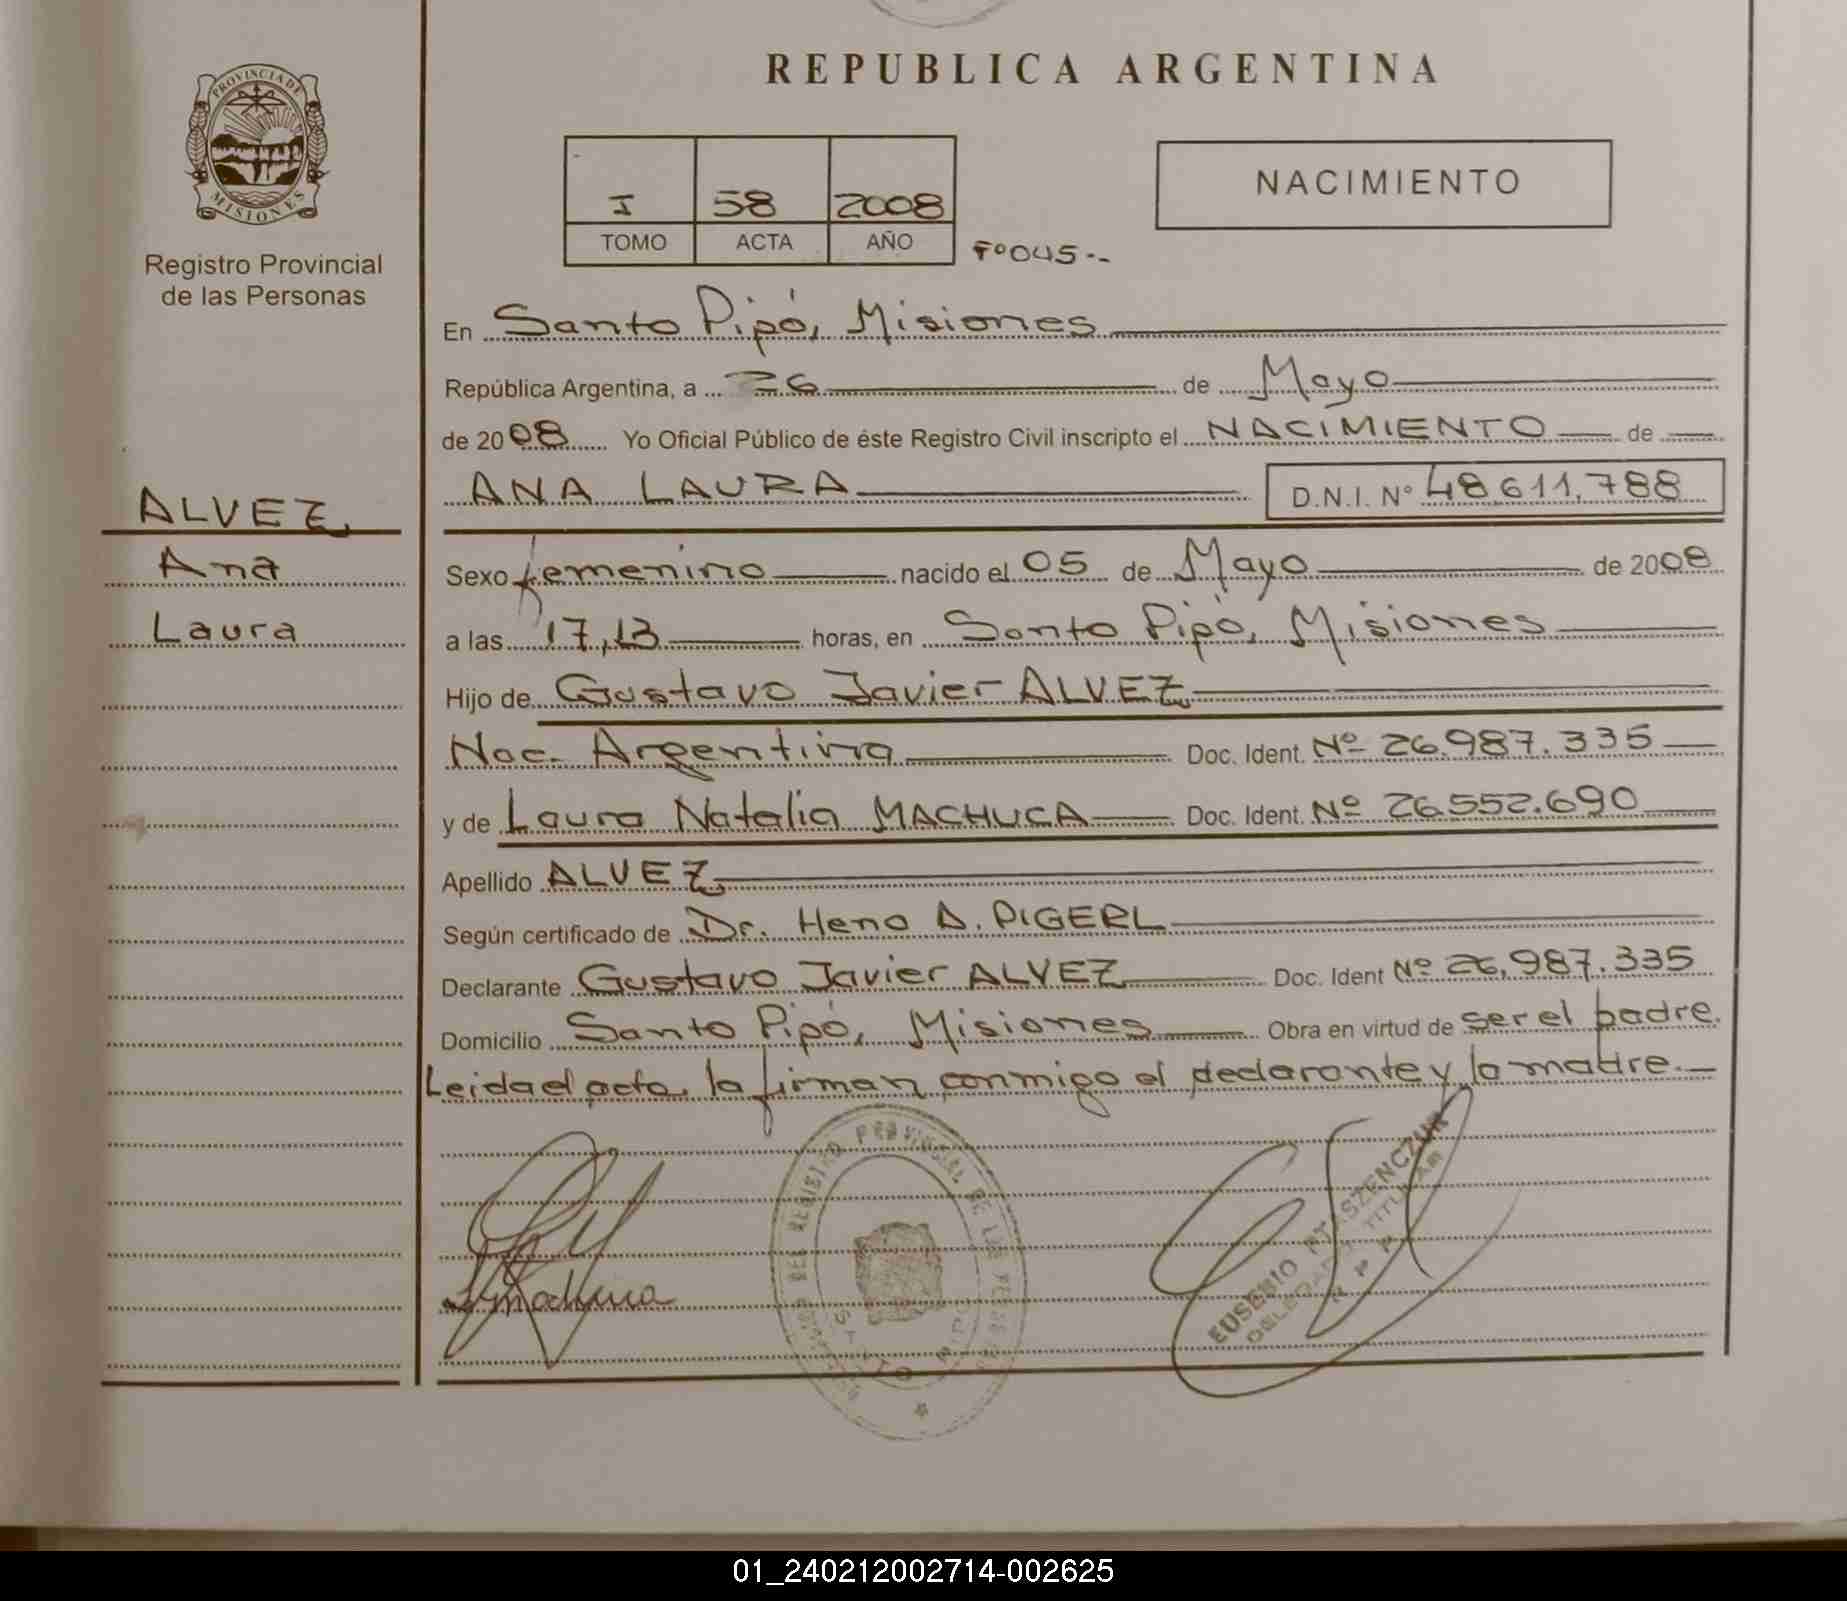 REPUBLICA ARGENTINA
PROVINCIA DE
MISIONES
Registro Provincial
de las Personas
I 58 2008
TOMO ACTA AÑO
Fº 045.-
NACIMIENTO
En Santo Pipó, Misiones
República Argentina, a 26 de Mayo
de 2008 Yo Oficial Público de éste Registro Civil inscripto el NACIMIENTO de
ANA LAURA D.N.I. Nº 48.611.788
ALVEZ
Ana
Laura
Sexo femenino nacido el 05 de Mayo de 2008
a las 17,13 horas, en Santo Pipó, Misiones
Hijo de Gustavo Javier ALVEZ
Nac. Argentina Doc. Ident. Nº 26.987.335
y de Laura Natalia MACHUCA Doc. Ident. Nº 26.552.690
Apellido ALVEZ
Según certificado de Dr. Heno A. PIGERL
Declarante Gustavo Javier ALVEZ Doc. Ident Nº 26.987.335
Domicilio Santo Pipó, Misiones Obra en virtud de ser el padre.
Leida el acta, la firman conmigo el declarante y la madre.
REGISTRO PROVINCIAL DE LAS
SANTO PIPO
EUSEBIO
TITULAR
01_240212002714-002625